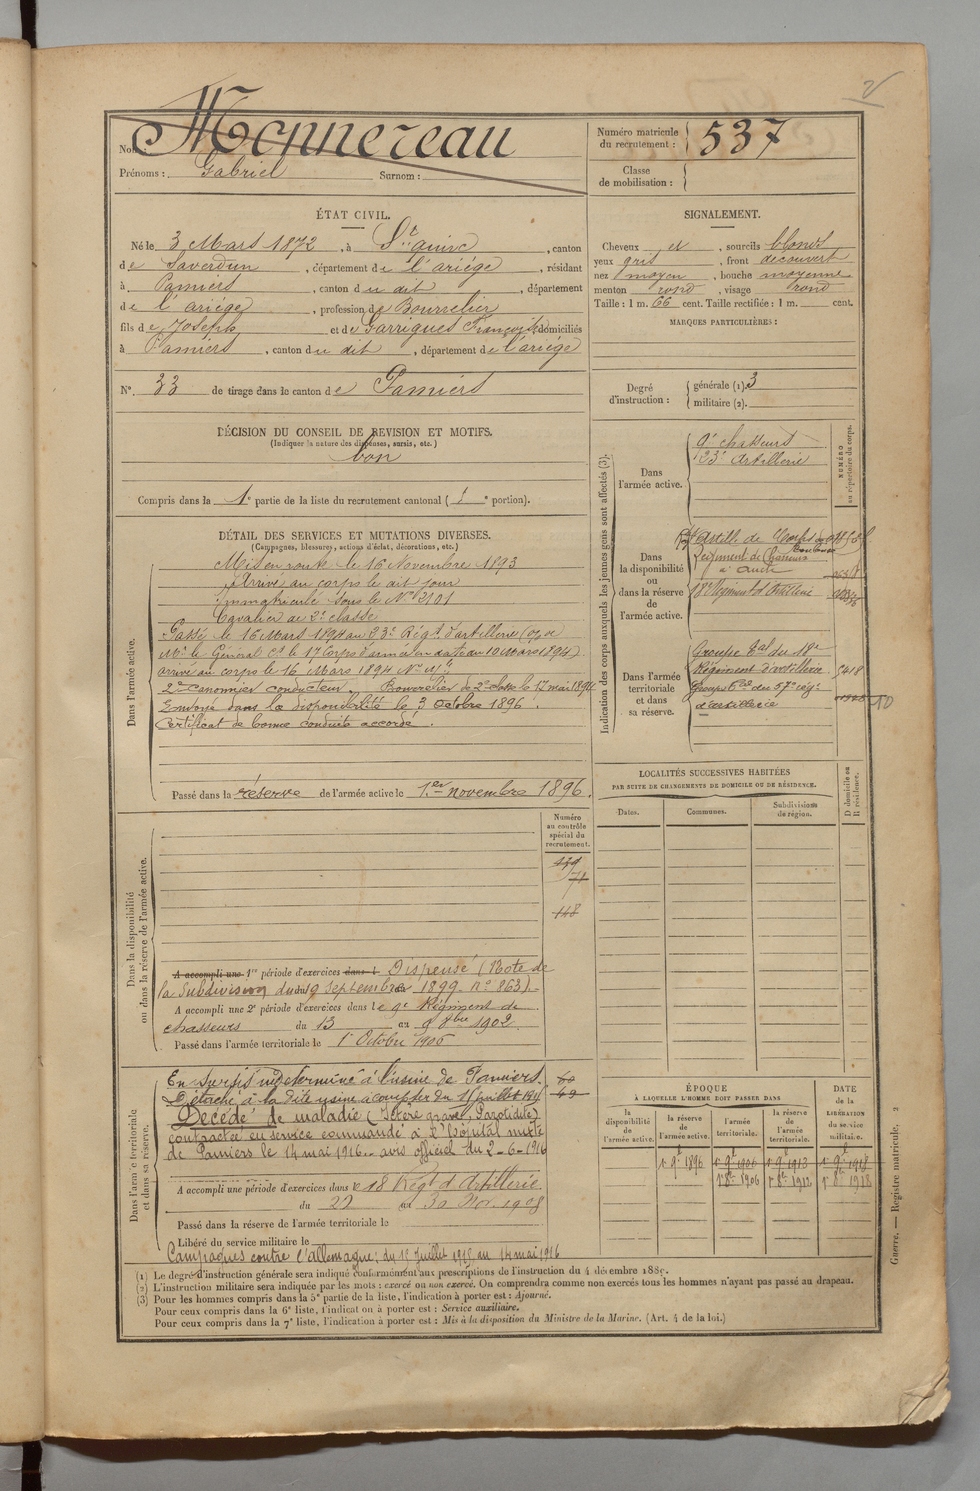 Nom : Monnereau
Prénoms : Gabriel Surnom :
Numéro matricule du recrutement : 537
Classe de mobilisation :
ÉTAT CIVIL.
Né le 3 Mars 1872, à St Quirc, canton
de Saverdun, département de l'ariége, résidant
à Pamiers, canton du dit, département
de l'ariége, profession de Bourrelier
fils de Joseph et de Garrigues Françoise domiciliés
à Pamiers, canton du dit, département de l'ariége
N° 33 de tirage dans le canton de Pamiers
SIGNALEMENT.
Cheveux et, sourcils blonds
yeux gris, front découvert
nez moyen, bouche moyenne
menton rond, visage rond
Taille : 1 m. 66 cent. Taille rectifiée : 1 m. cent.
MARQUES PARTICULIÈRES :
Degré d'instruction : générale (1). 3
militaire (2).
DÉCISION DU CONSEIL DE REVISION ET MOTIFS.
(Indiquer la nature des dispenses, sursis, etc.)
bon
Compris dans la 1e partie de la liste du recrutement cantonal ( 1e portion).
DÉTAIL DES SERVICES ET MUTATIONS DIVERSES.
(Campagnes, blessures, actions d'éclat, décorations, etc.)
Dans l'armée active.
Mis en route le 16 Novembre 1893
Arrivé au corps le dit jour
Immatriculé sous le N° 2101
Cavalier de 2e classe
Passé le 16 Mars 1894 au 23e Régt d'artillerie (
Mr le Général Ct le 17 Corps d'armée en date du 10 Mars 1894)
arrivé au corps le 16 Mars 1894 N° Mle
2e canonnier conducteur. Bourrelier de 2e classe le 17 mai 1894
Envoyé dans la disponibilité le 3 Octobre 1896.
Certificat de bonne conduite accordé.
Passé dans la réserve de l'armée active le 1er novembre 1896.
Indication des corps auxquels les jeunes gens sont affectés (3).
NUMÉRO au répertoire du corps.
Dans l'armée active.
9e chasseurs
23e Artillerie
Dans la disponibilité ou dans la réserve de l'armée active.
Artille de Corps
Régiment de Chasseurs
à Auch
18e Régiment d'Artillerie
Dans l'armée territoriale et dans sa réserve.
Groupe Tal du 18e
Régiment d'artillerie
Groupe du 57e rég
d'artillerie
LOCALITÉS SUCCESSIVES HABITÉES
PAR SUITE DE CHANGEMENTS DE DOMICILE OU DE RÉSIDENCE.
Dates. Communes. Subdivisions de région. D domicile ou R résidence.
Dans la disponibilité ou dans la réserve de l'armée active.
Numéro au contrôle spécial du recrutement.
71
148
A accompli une 1re période d'exercices dans l Dispensé (Note de
la Subdivision du 19 Septembre 1899 n° 863).
A accompli une 2e période d'exercices dans le 9e Régiment de
chasseurs du 13 au 9 8bre 1902.
Passé dans l'armée territoriale le 1er Octobre 1906
Dans l'armée territoriale et dans sa réserve.
En Sursis indéterminé à l'usine de Pamiers.
Détaché à la dite usine à compter du 15 juillet 1915
Décédé de maladie (Ictère grave, Parotidite)
contractée en service commandé à l'hôpital mixte
de Pamiers le 14 mai 1916.. avis officiel du 2-6-1916
A accompli une période d'exercices dans le 18 Régt d'Artillerie
du 22 au 30 Nov. 1908
Passé dans la réserve de l'armée territoriale le
Libéré du service militaire le
Campagnes contre l'Allemagne: du 15 Juillet 1915 au 14 mai 1916
ÉPOQUE
À LAQUELLE L'HOMME DOIT PASSER DANS
la disponibilité de l'armée active. la réserve de l'armée active. l'armée territoriale. la réserve de l'armée territoriale.
DATE de la LIBÉRATION du service militaire.
1896 1906 1913 1918
1906 1912 1918
Guerre. — Registre matricule, 2
(1) Le degré d'instruction générale sera indiqué conformément aux prescriptions de l'instruction du 4 décembre 1889.
(2) L'instruction militaire sera indiquée par les mots : exercé ou non exercé. On comprendra comme non exercés tous les hommes n'ayant pas passé au drapeau.
(3) Pour les hommes compris dans la 5e partie de la liste, l'indication à porter est : Ajourné.
Pour ceux compris dans la 6e liste, l'indication à porter est : Service auxiliaire.
Pour ceux compris dans la 7e liste, l'indication à porter est : Mis à la disposition du Ministre de la Marine. (Art. 4 de la loi.)